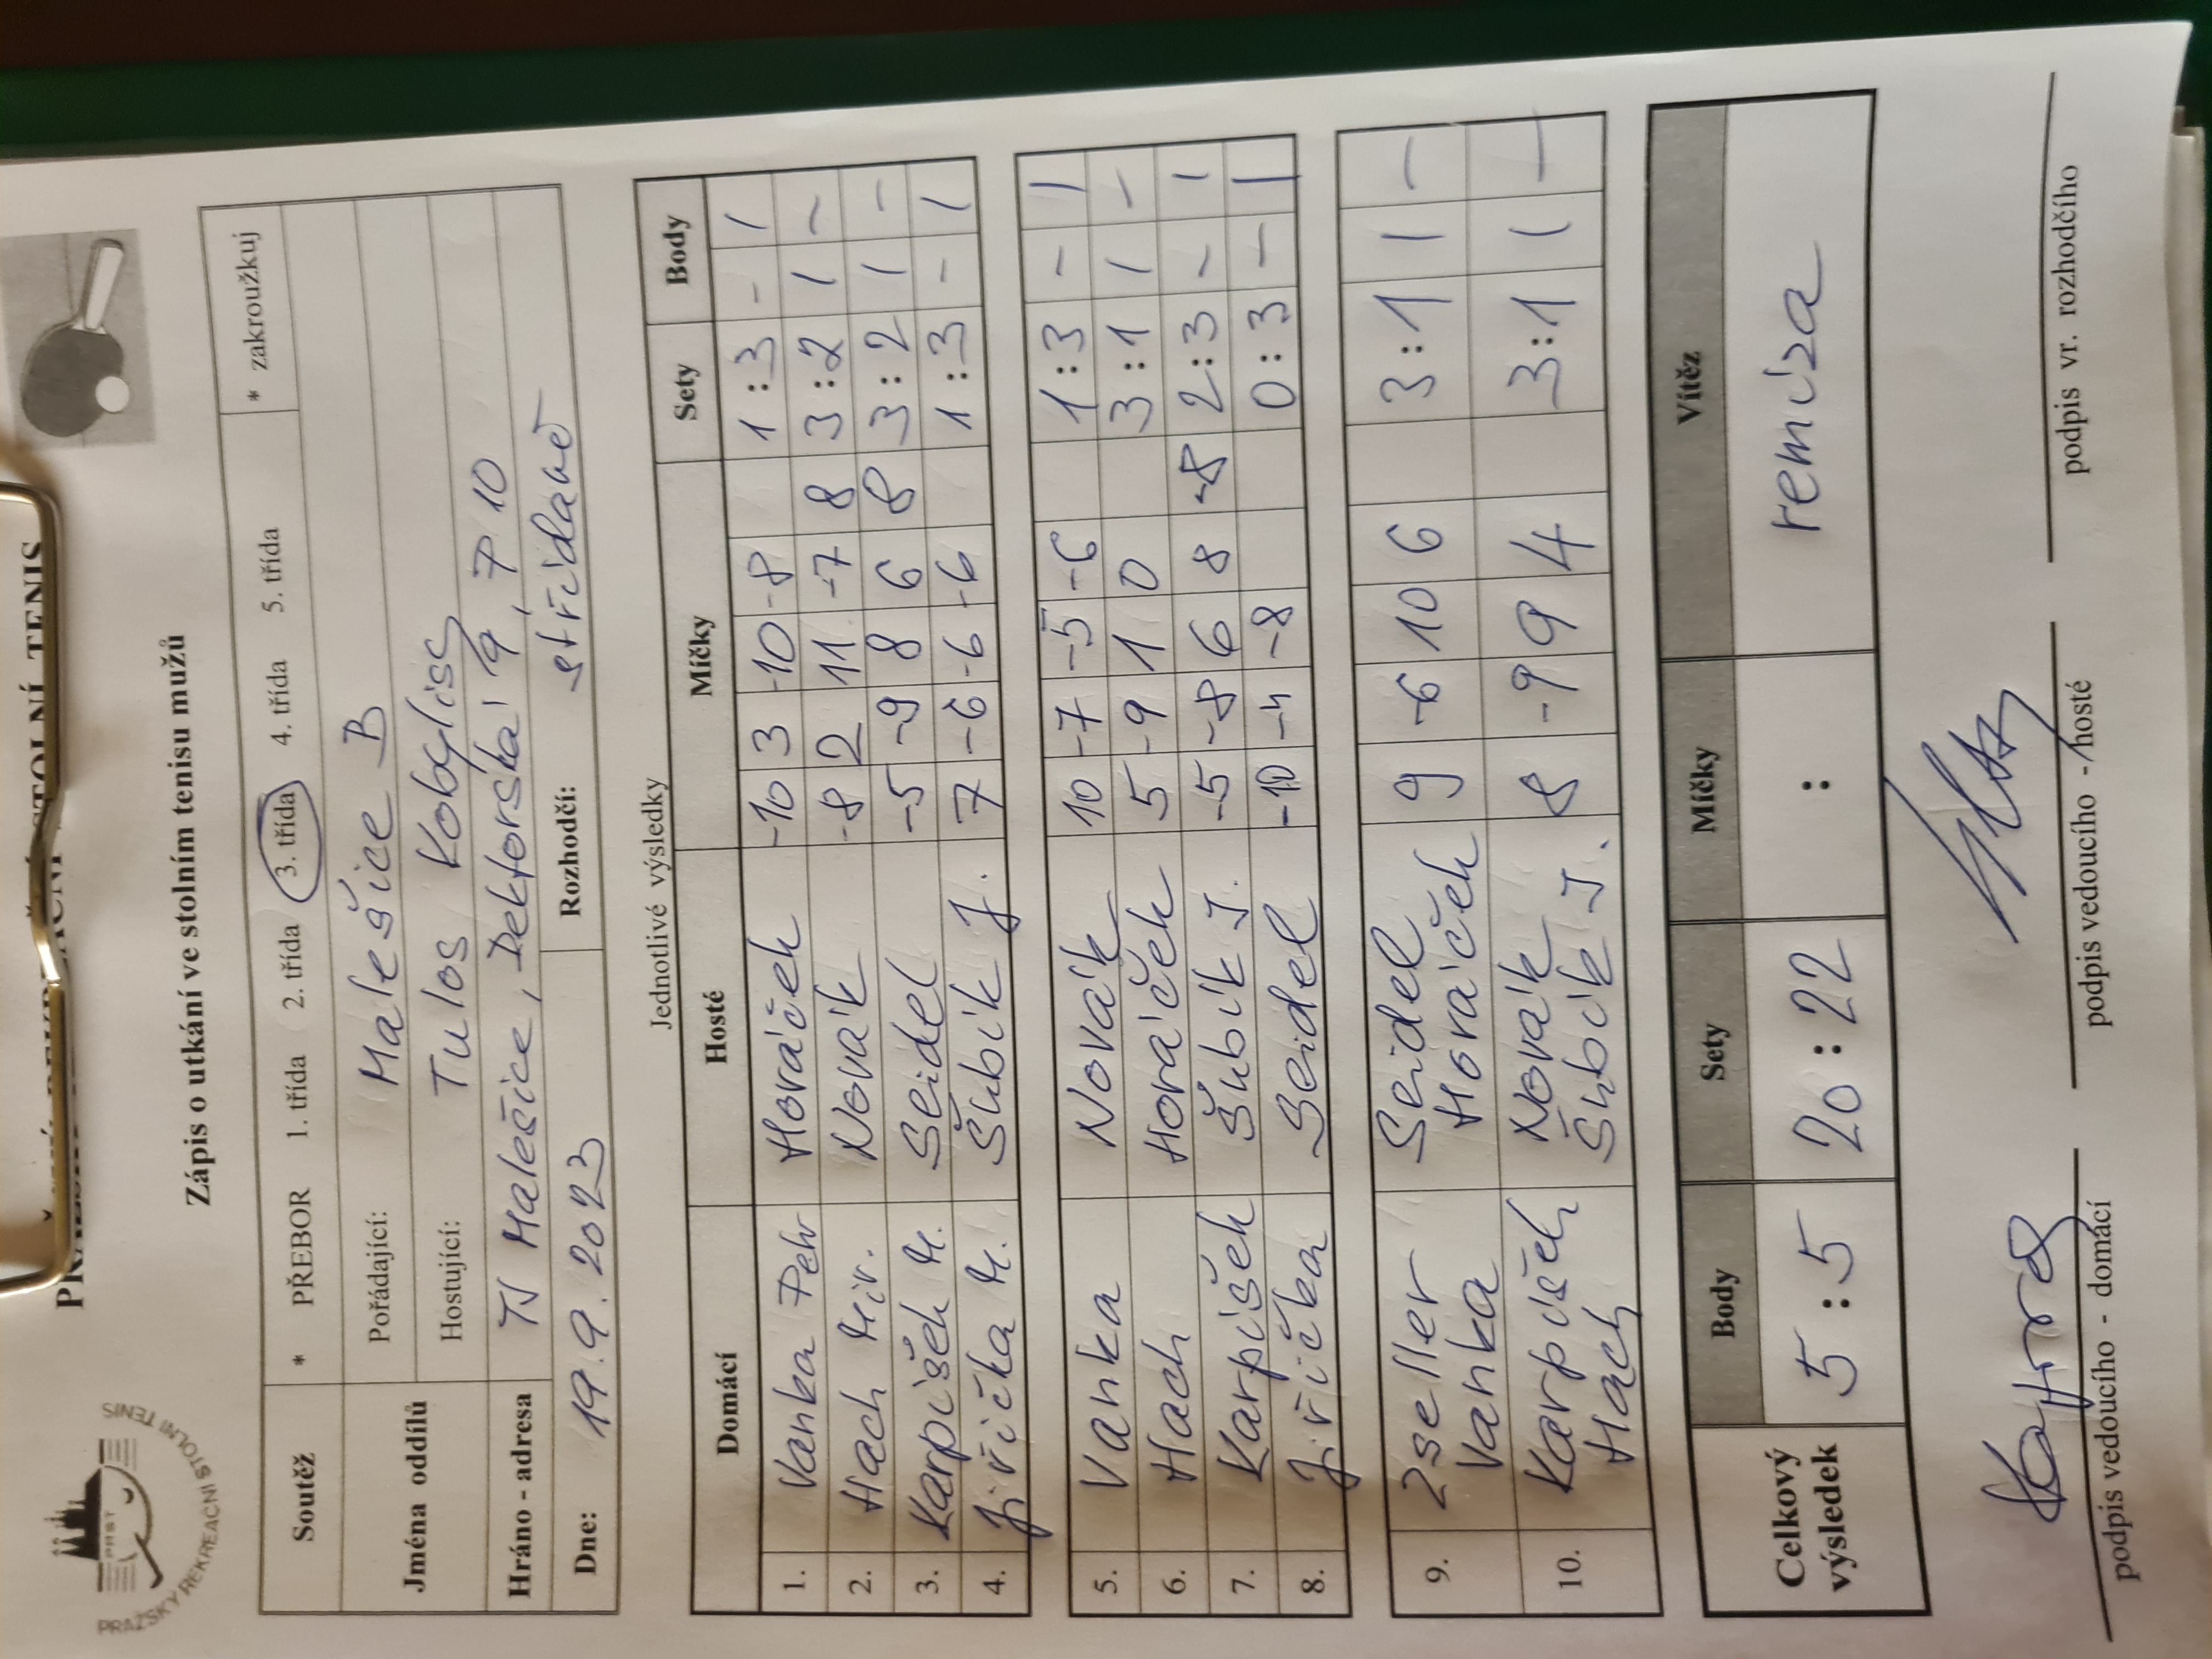 STOLNÍ TENIS
PRAŽSKÝ REKREAČNÍ STOLNÍ TENIS
PRST
Zápis o utkání ve stolním tenisu mužů
Soutěž * PŘEBOR 1. třída 2. třída 3. třída 4. třída 5. třída * zakroužkuj
Jména oddílů Pořádající: Malešice B
Hostující: Tulos Kobylisy
Hráno - adresa TJ Malešice, Dektorská 9, P 10
Dne: 19.9.2023 Rozhodčí: střídavě
Jednotlivé výsledky
Domácí Hosté Míčky Sety Body
1. Vanka Petr Horáček -10 3 -10 -8 1:3 - 1
2. Hach Mir. Novák -8 2 11 -7 8 3:2 1 -
3. Karpíšek M. Seidel -5 -9 8 6 8 3:2 1 -
4. Jiřička M. Šubík J. 7 -6 -6 -6 1:3 - 1
5. Vanka Novák 10 -7 -5 -6 1:3 - 1
6. Hach Horáček 5 -9 1 0 3:1 1 -
7. Karpíšek Šubík J. -5 -8 6 8 -8 2:3 - 1
8. Jiřička Seidel -10 -4 -8 0:3 - 1
9. Zseller Seidel 9 -6 10 6 3:1 1 -
Vanka Horáček
10. Karpíšek Novák 8 -9 9 4 3:1 1 -
Hach Šubík J.
Celkový výsledek Body Sety Míčky Vítěz
5:5 20:22 : remíza
podpis vedoucího - domácí podpis vedoucího - hosté podpis vr. rozhodčího